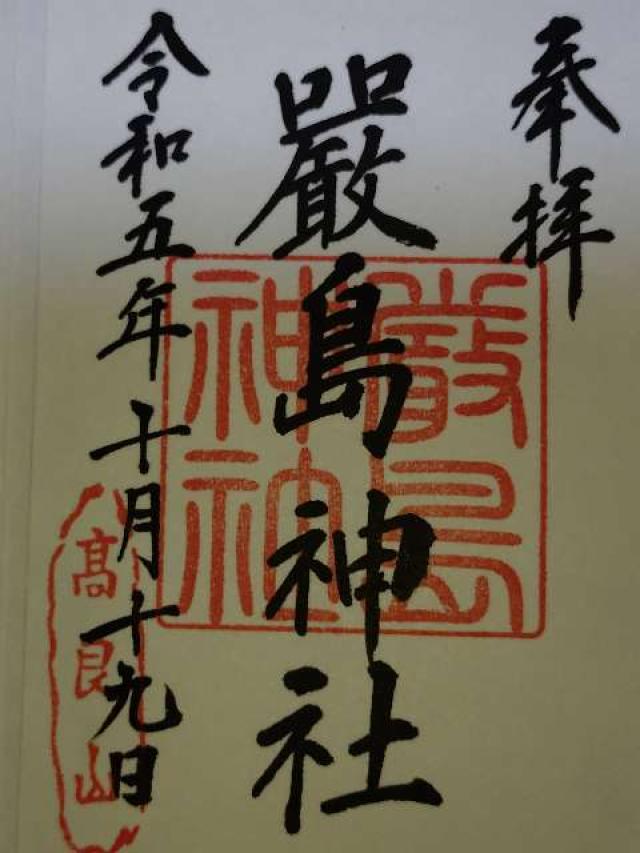 奉拝
嚴島神社
令和五年十月十九日
厳島
神社
髙良山